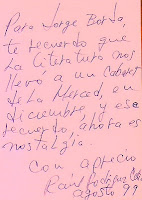 Para Jorge Borda,
te recuerdo que
la literatura nos
llevó a un Cabaret
de La Merced, en
diciembre y ese
recuerdo, ahora es
nostalgia.
Con aprecio
Raúl Rodríguez
agosto 99